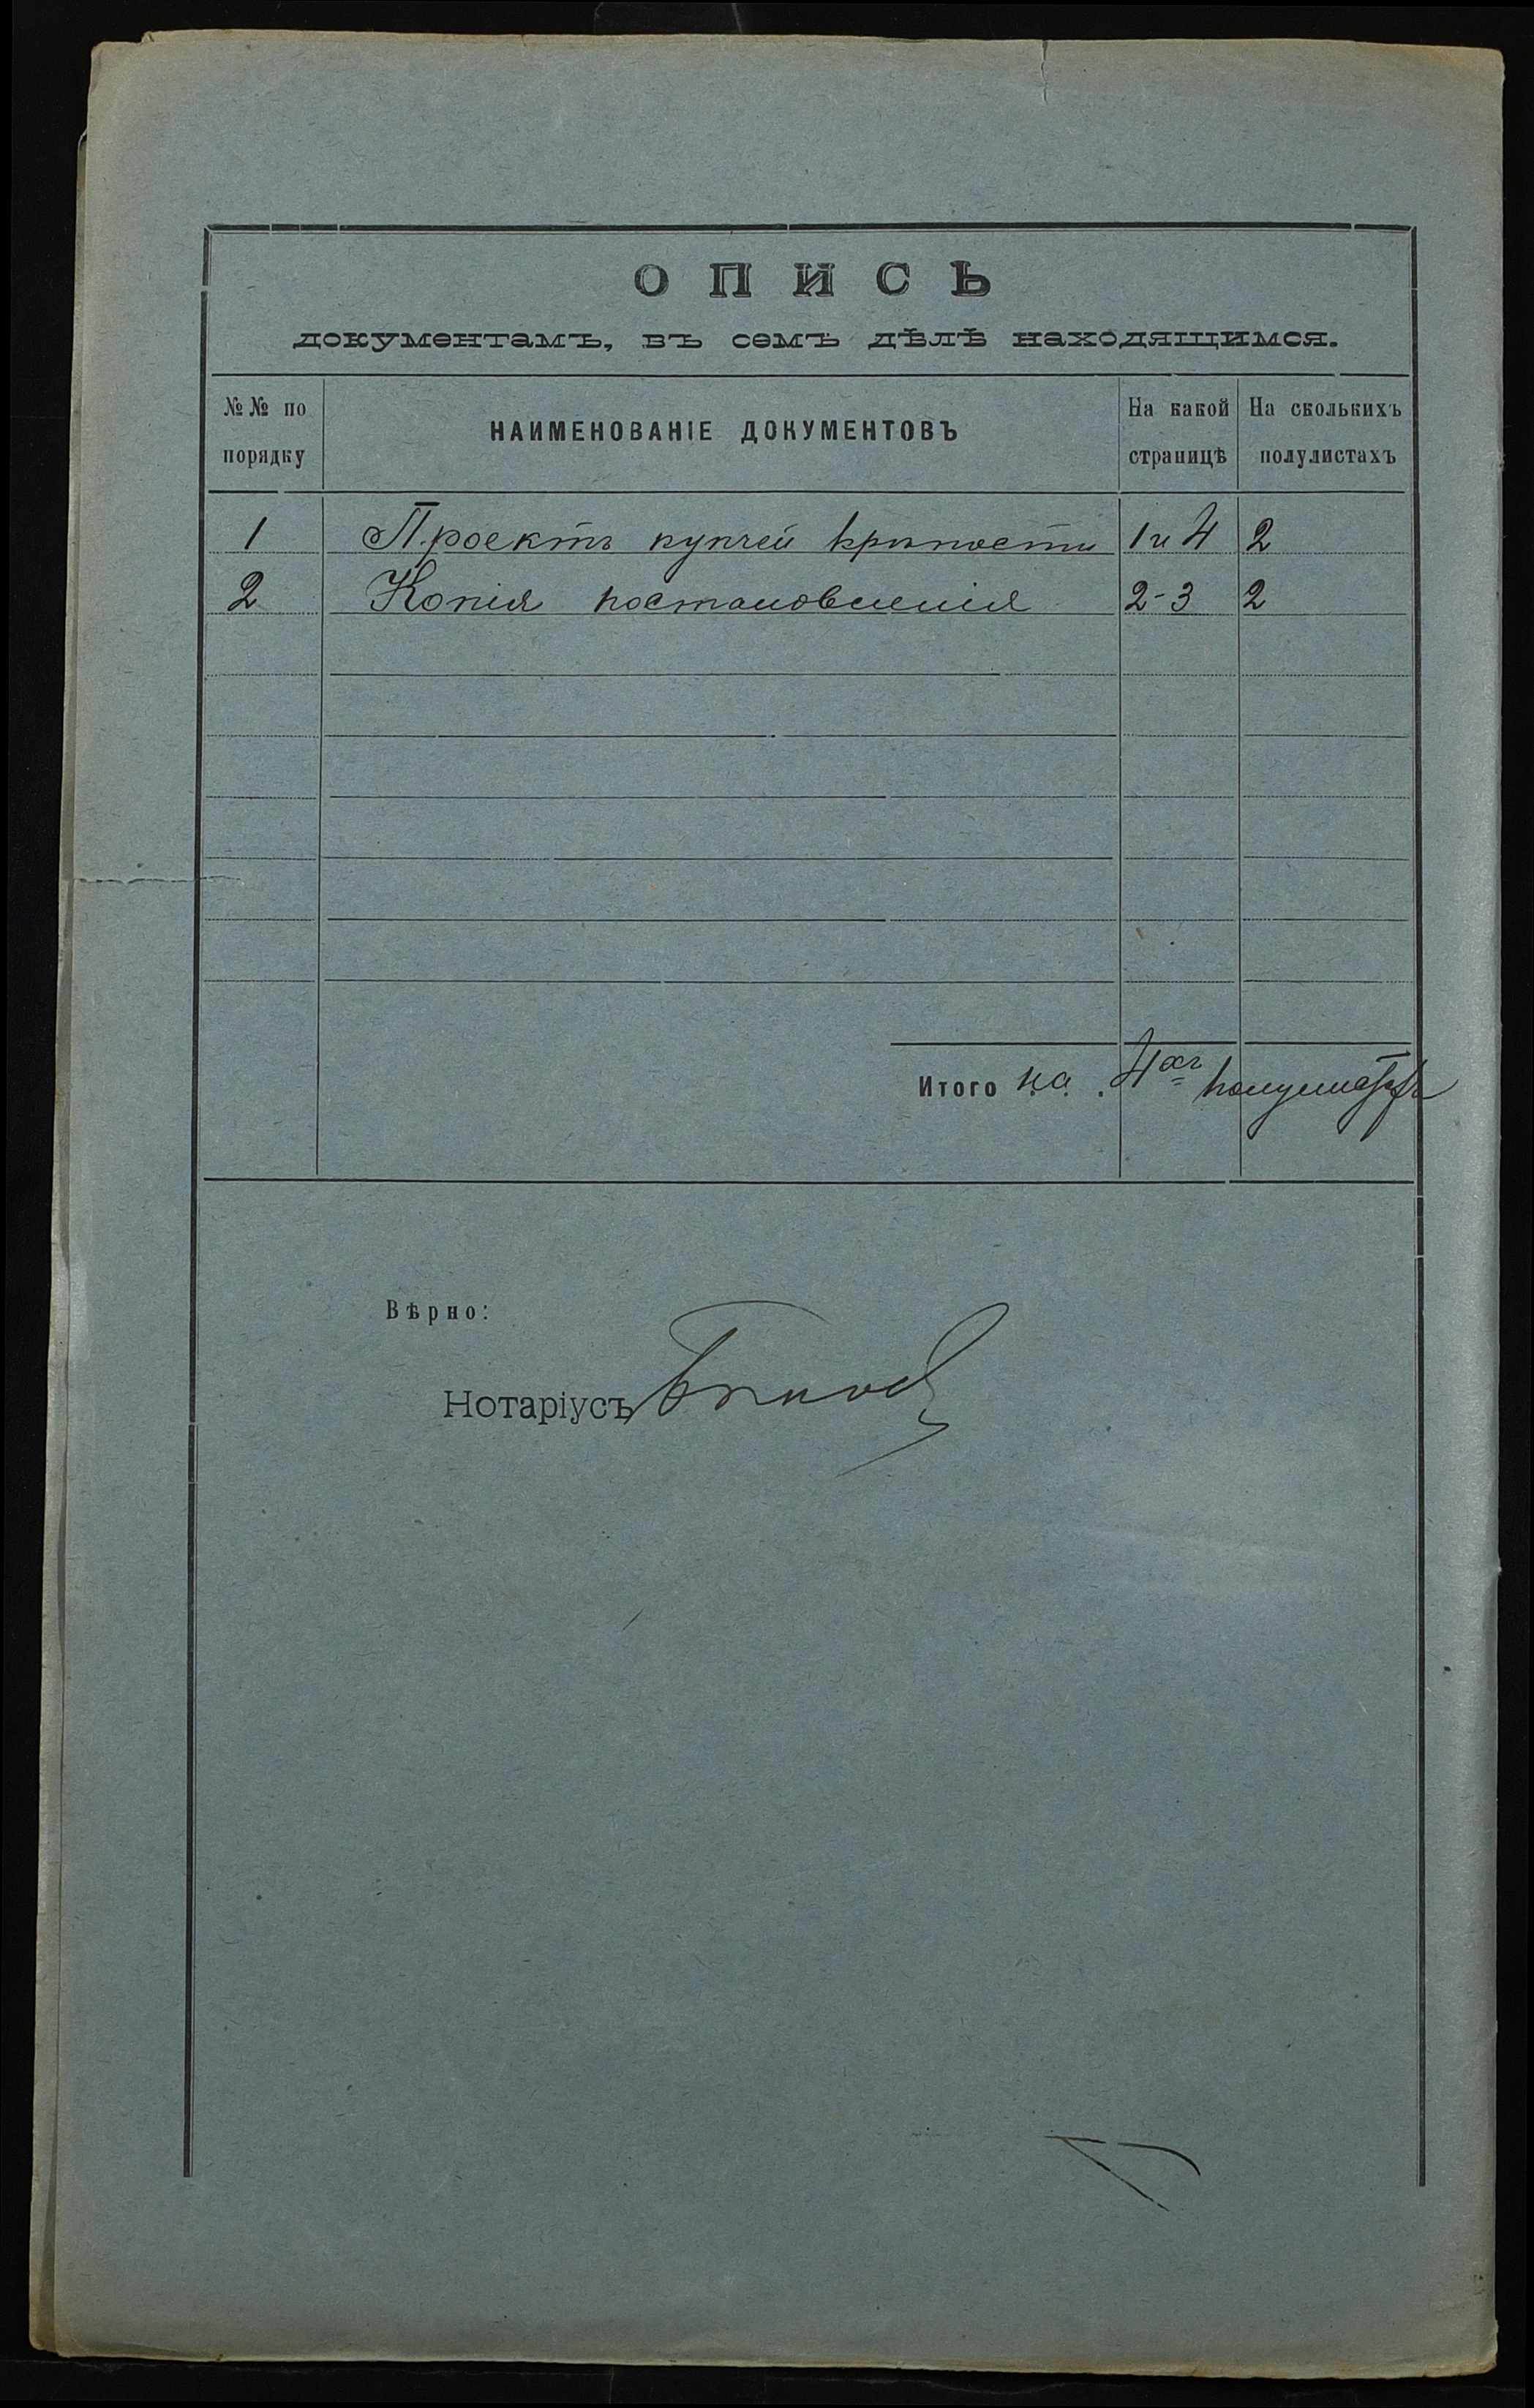 ОПИСЬ
документамъ, въ семъ дѣлѣ находящимся.
№№ по порядку
НАИМЕНОВАНІЕ ДОКУМЕНТОВЪ
На какой страницѣ
На сколькихъ полулистахъ
1 Проектъ купчей крѣпости 1 и 4 2
2 Копія постановленія 2-3 2
Итого на 4хъ полулистахъ
Вѣрно:
Нотаріусъ